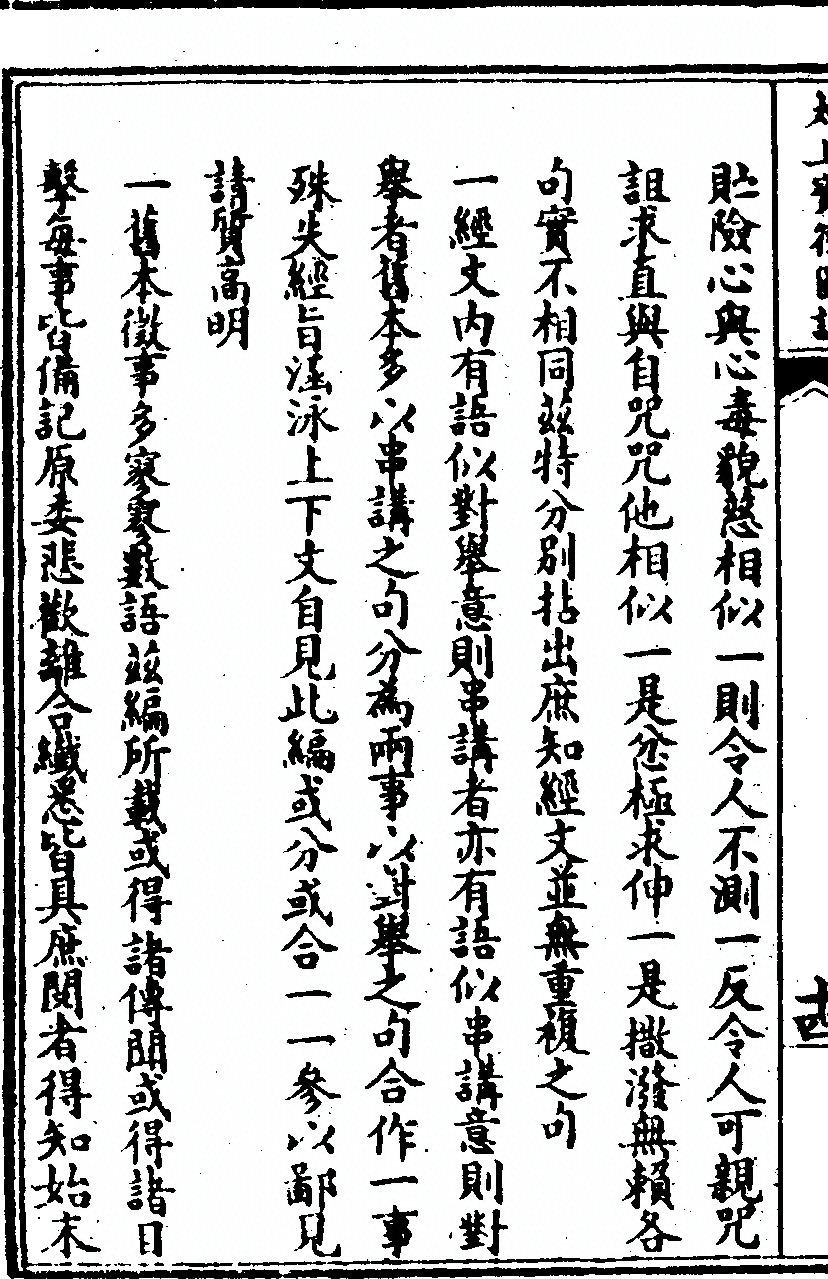 太上寶筏圖說
十四
貯險心與心毒貌慈相似一則令人不測一反令人可親咒
詛求直與自咒咒他相似一是忿極求伸一是撒潑無賴各
句實不相同茲特分別拈出庶知經文並無重複之句
一經文内有語似對舉意則串講者亦有語似串講意則對
舉者舊本多以串講之句分為兩事以對舉之句合作一事
殊失經旨涵泳上下文自見此編或分或合一一參以鄙見
請質高明
一舊本徵事多寥寥數語茲編所載或得諸傳聞或得諸目
擊每事皆備記原委悲歡離合纖悉皆具庶閱者得知始末